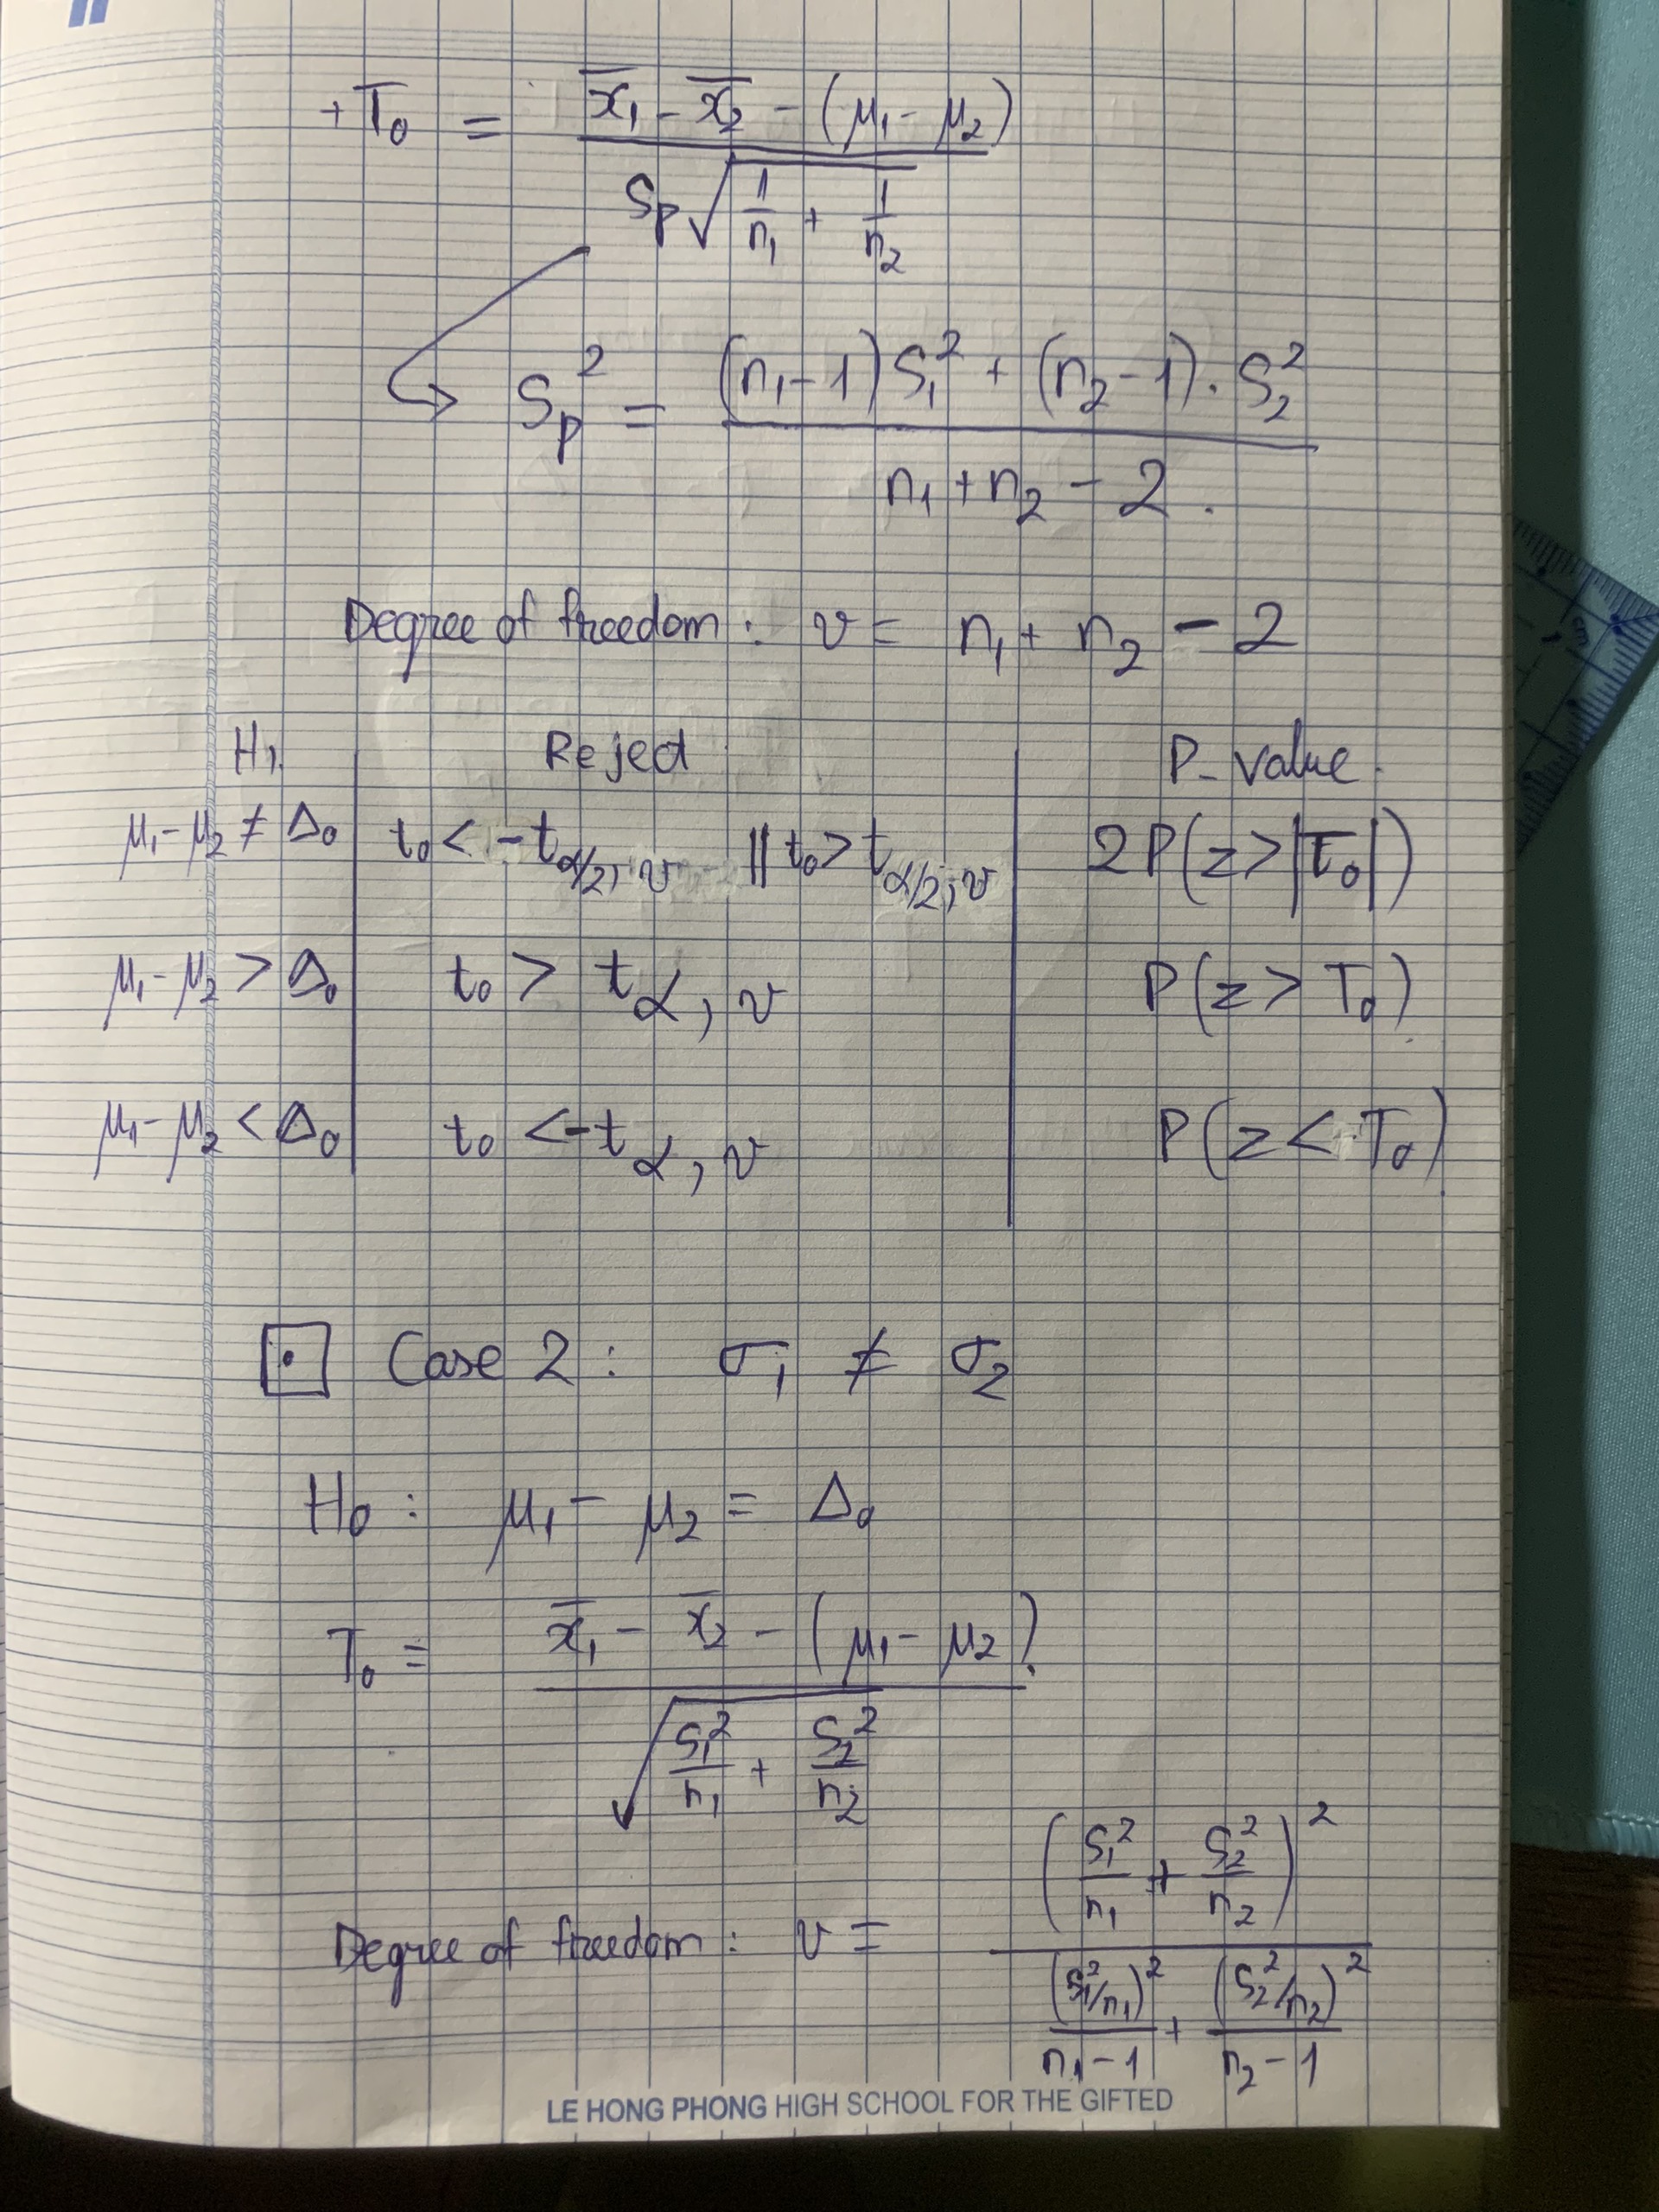 + T₀ = (x̄₁ - x̄₂ - (μ₁ - μ₂)) / (Sp √(1/n₁ + 1/n₂))
↪ Sp² = ((n₁-1) S₁² + (n₂-1) . S₂²) / (n₁ + n₂ - 2) .
Degree of freedom : v = n₁ + n₂ - 2
H₁. | Reject | P_ value.
μ₁ - μ₂ ≠ Δ₀ | t₀ < -t α/2, v || t₀ > t α/2; v | 2P(z > |T₀|)
μ₁ - μ₂ > Δ₀ | t₀ > t α, v | P(z > T₀)
μ₁ - μ₂ < Δ₀ | t₀ < -t α, v | P(z < T₀)
Case 2 : σ₁ ≠ σ₂
H₀ : μ₁ - μ₂ = Δ₀
T₀ = (x̄₁ - x̄₂ - (μ₁ - μ₂)) / √(S₁²/n₁ + S₂²/n₂)
Degree of freedom : v = (S₁²/n₁ + S₂²/n₂)² / ((S₁²/n₁)²/(n₁-1) + (S₂²/n₂)²/(n₂-1))
LE HONG PHONG HIGH SCHOOL FOR THE GIFTED
cm